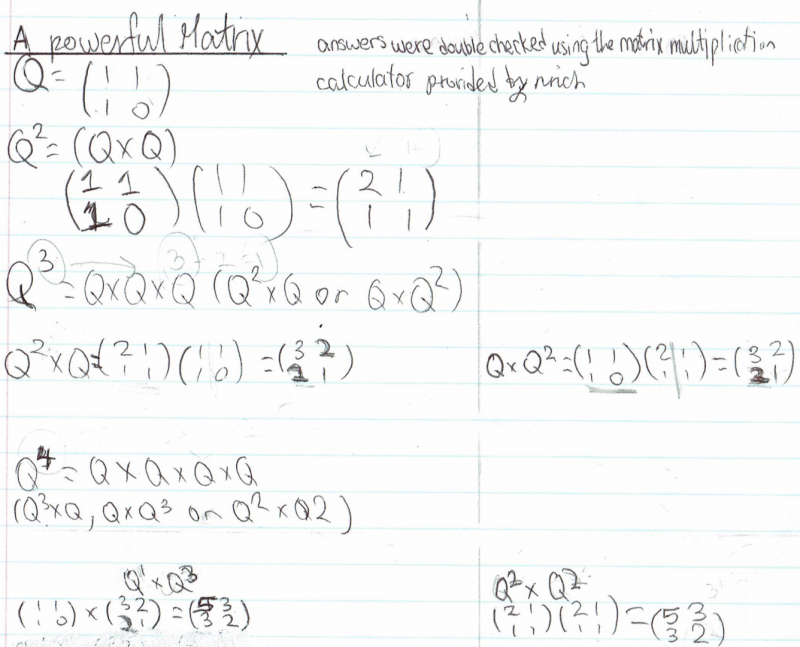 A powerful Matrix
answers were double checked using the matrix multipliction
calculator provided by nrich
Q = (1 1
1 0)
Q² = (Q×Q)
(1 1 (1 1 = (2 1
1 0) 1 0) 1 1)
Q³ = Q×Q×Q (Q²×Q or Q×Q²)
Q²×Q = (2 1 (1 1 = (3 2
1 1) 1 0) 2 1)
Q×Q² = (1 1 (2 1 = (3 2
1 0) 1 1) 2 1)
Q⁴ = Q×Q×Q×Q
(Q³×Q, Q×Q³ or Q²×Q2)
Q¹×Q³
(1 1 × (3 2 = (5 3
1 0) 2 1) 3 2)
Q²×Q²
(2 1 (2 1 = (5 3
1 1) 1 1) 3 2)